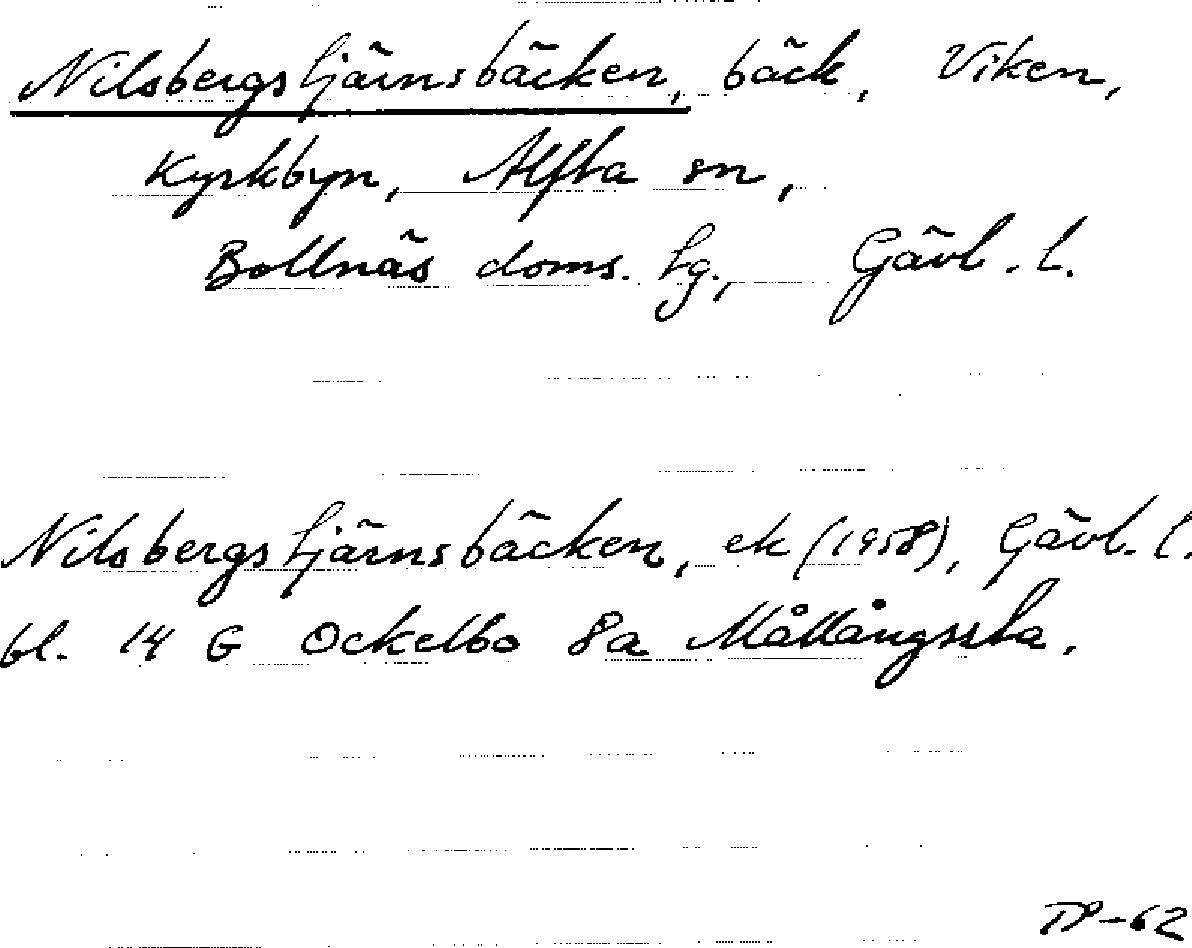 Nilsbergstjärnsbäcken, bäck, Viken,
Kyrkbyn, Alfta sn,
Bollnäs doms. tg., Gävl. l.
Nilsbergstjärnsbäcken, ek (1958), Gävl. l.
bl. 14 G Ockelbo 8a Mållångssta.
TP-62